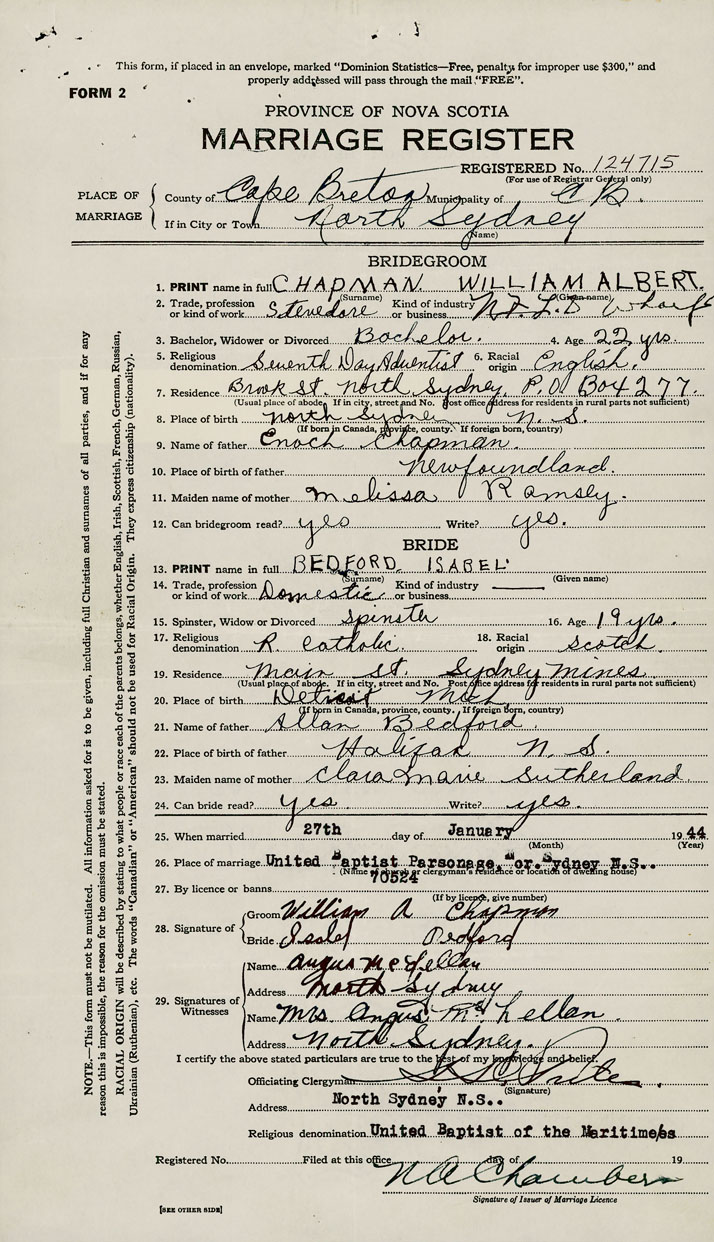 This form, if placed in an envelope, marked "Dominion Statistics—Free, penalty for improper use $300," and
properly addressed will pass through the mail "FREE".
FORM 2
PROVINCE OF NOVA SCOTIA
MARRIAGE REGISTER
REGISTERED No. 124715
(For use of Registrar General only)
PLACE OF MARRIAGE
County of Cape Breton Municipality of C B.
If in City or Town North Sydney
(Name)
BRIDEGROOM
1. PRINT name in full CHAPMAN WILLIAM ALBERT.
(Surname) (Given name)
2. Trade, profession or kind of work Stevedore Kind of industry or business N.F.L.D Wharf
3. Bachelor, Widower or Divorced Bachelor. 4. Age 22 yrs.
5. Religious denomination Seventh Day Adventist 6. Racial origin English.
7. Residence Brook St. North Sydney, P.O. Box 277.
(Usual place of abode. If in city, street and No. Post office address for residents in rural parts not sufficient)
8. Place of birth North Sydney N. S.
(If born in Canada, province, county. If foreign born, country)
9. Name of father Enoch Chapman.
10. Place of birth of father Newfoundland.
11. Maiden name of mother Melissa Ramsey.
12. Can bridegroom read? yes Write? yes.
BRIDE
13. PRINT name in full BEDFORD ISABEL
(Surname) (Given name)
14. Trade, profession or kind of work Domestic Kind of industry or business
15. Spinster, Widow or Divorced Spinster 16. Age 19 yrs.
17. Religious denomination R. Catholic. 18. Racial origin Scotch.
19. Residence Main St. Sydney Mines
(Usual place of abode. If in city, street and No. Post office address for residents in rural parts not sufficient)
20. Place of birth Detroit Mich
(If born in Canada, province, county. If foreign born, country)
21. Name of father Allan Bedford.
22. Place of birth of father Halifax N. S.
23. Maiden name of mother Clara Marie Sutherland.
24. Can bride read? yes Write? yes.
25. When married 27th day of January 1944
(Month) (Year)
26. Place of marriage United Baptist Parsonage, or. Sydney N.S..
(Name of church or clergyman's residence or location of dwelling house)
27. By licence or banns 70524
(If by licence, give number)
28. Signature of
Groom William A Chapman
Bride Isabel Bedford
29. Signatures of Witnesses
Name Angus McLellan
Address North Sydney
Name Mrs. Angus McLellan.
Address North Sydney.
I certify the above stated particulars are true to the best of my knowledge and belief.
Officiating Clergyman
(Signature)
Address North Sydney N.S..
Religious denomination United Baptist of the Maritimes
Registered No. Filed at this office day of 19
N A Chambers
Signature of Issuer of Marriage Licence
[SEE OTHER SIDE]
NOTE.—This form must not be mutilated. All information asked for is to be given, including full Christian and surnames of all parties, and if for any
reason this is impossible, the reason for the omission must be stated.
RACIAL ORIGIN will be described by stating to what people or race each of the parents belongs, whether English, Irish, Scottish, French, German, Russian,
Ukrainian (Ruthenian), etc. The words "Canadian" or "American" should not be used for Racial Origin. They express citizenship (nationality).